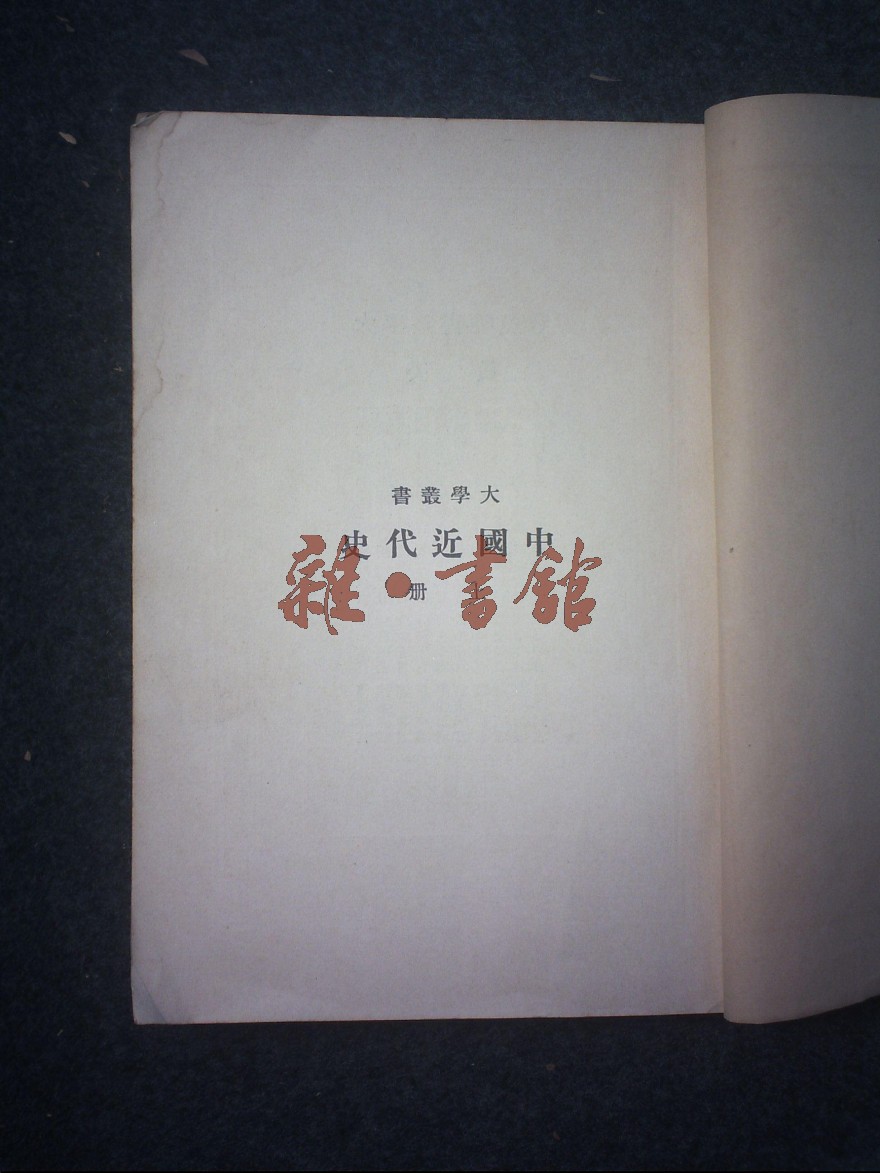 大學叢書
中國近代史
册
雜·書館